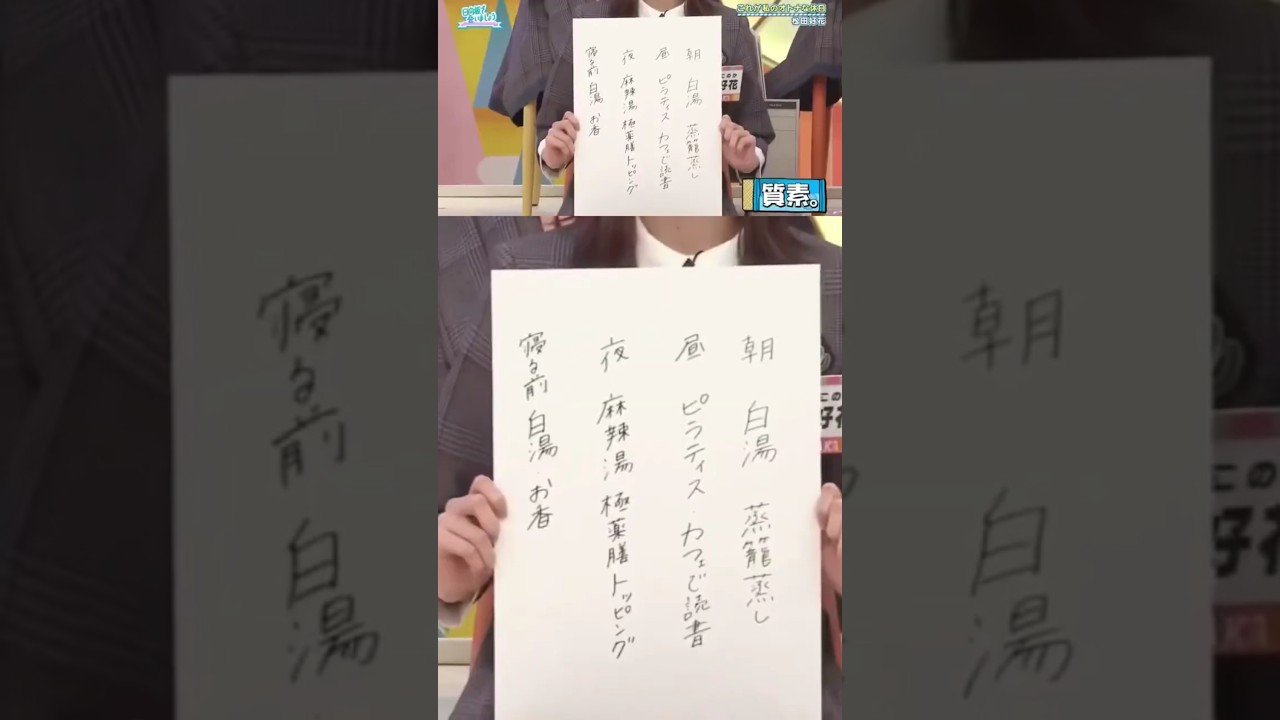 日向坂で会いましょう
これが私のオトナな休日
松田好花
朝 白湯 蒸籠蒸し
昼 ピラティス・カフェで読書
夜 麻辣湯 極薬膳トッピング
寝る前 白湯・お香
このか
好花
質素。
朝 白湯 蒸籠蒸し
昼 ピラティス・カフェで読書
夜 麻辣湯 極薬膳トッピング
寝る前 白湯・お香
この
好花
寝る前 白湯
朝 白湯
この
好花